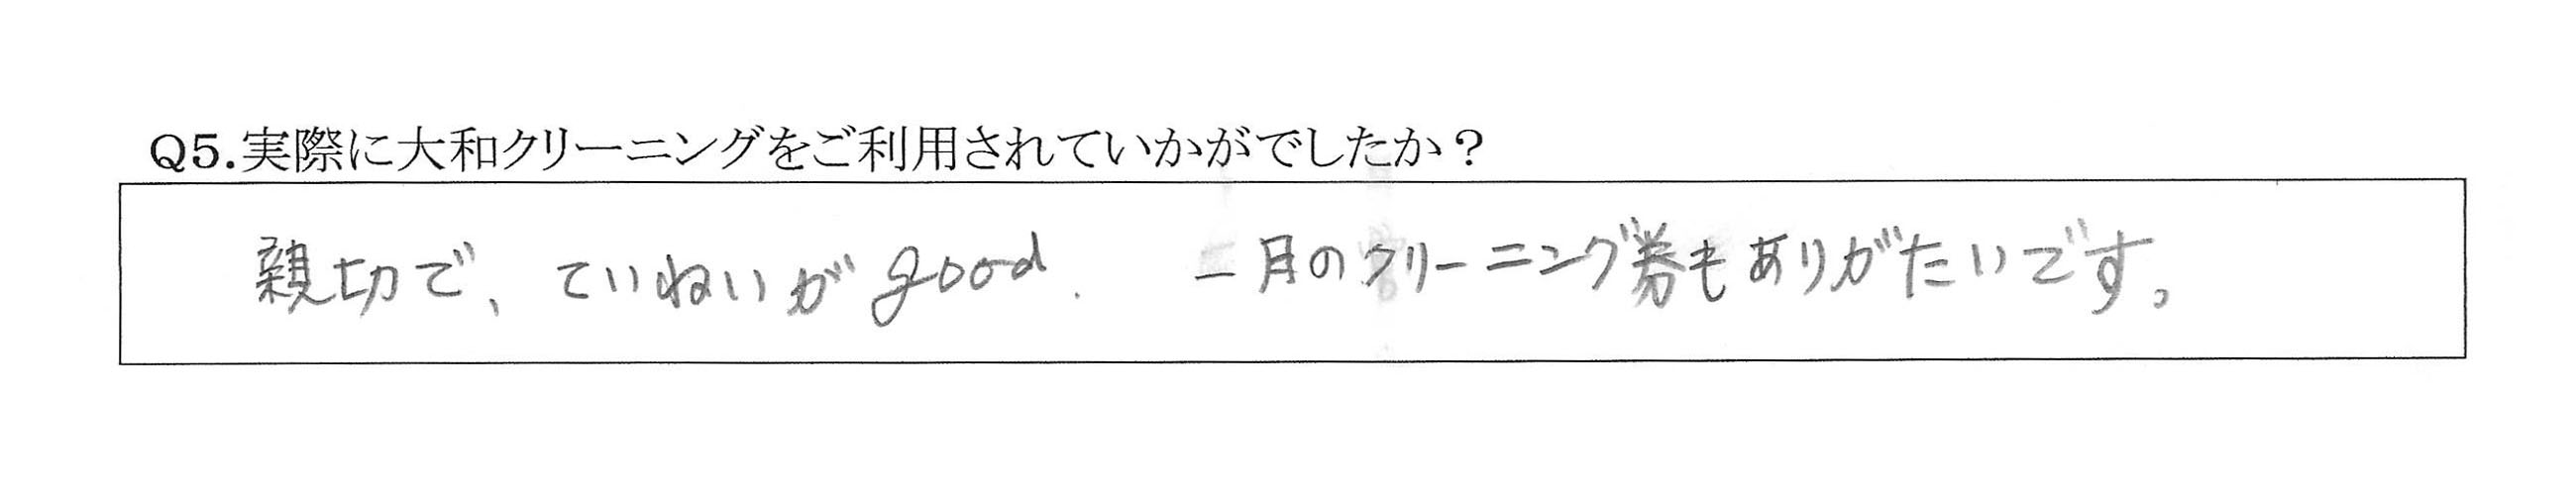 Q5.実際に大和クリーニングをご利用されていかがでしたか？
親切で、ていねいがgood. 一月のクリーニング券もありがたいです。